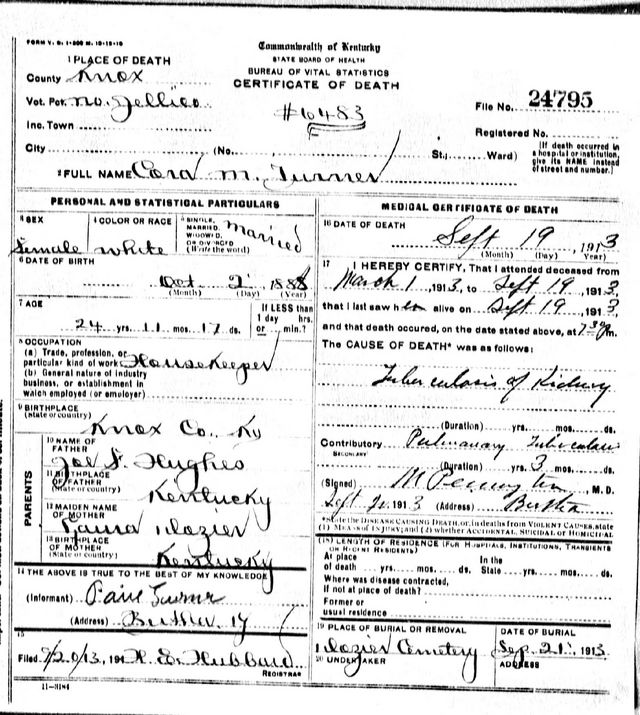 FORM V. S. 1-500 M. 10-18-10
Commonwealth of Kentucky
STATE BOARD OF HEALTH
BUREAU OF VITAL STATISTICS
CERTIFICATE OF DEATH
1 PLACE OF DEATH
County Knox
Vot. Pct. No. Jellico
#6483
File No. 24795
Inc. Town
Registered No.
City (No. St.; Ward)
[If death occurred in a hospital or institution, give its NAME instead of street and number.]
2 FULL NAME Cora M. Turner
PERSONAL AND STATISTICAL PARTICULARS
3 SEX
Female
4 COLOR OR RACE
White
5 SINGLE, MARRIED, WIDOWED, OR DIVORCED (Write the word)
Married
6 DATE OF BIRTH
Oct 2 1888
(Month) (Day) (Year)
7 AGE
24 yrs. 11 mos. 17 ds.
If LESS than 1 day hrs. or min.?
8 OCCUPATION
(a) Trade, profession, or particular kind of work Housekeeper
(b) General nature of industry business, or establishment in which employed (or employer)
9 BIRTHPLACE
(State or country)
Knox Co., Ky
PARENTS
10 NAME OF FATHER
Joe F. Hughes
11 BIRTHPLACE OF FATHER
(State or country)
Kentucky
12 MAIDEN NAME OF MOTHER
Dozier
13 BIRTHPLACE OF MOTHER
(State or country)
Kentucky
14 THE ABOVE IS TRUE TO THE BEST OF MY KNOWLEDGE
(Informant) Turner
(Address) Ky
15
Filed 9/20/13, 191 H. E. Hubbard
REGISTRAR
11-3184
MEDICAL CERTIFICATE OF DEATH
16 DATE OF DEATH
Sept 19, 1913
(Month) (Day) (Year)
17 I HEREBY CERTIFY, That I attended deceased from
March 1, 1913, to Sept 19, 1913,
that I last saw her alive on Sept 19, 1913
and that death occurred, on the date stated above, at 7:30 m.
The CAUSE OF DEATH* was as follows:
Tuberculosis of Kidney
(Duration) yrs. mos. ds.
Contributory Pulmonary Tuberculosis
SECONDARY
(Duration) yrs. 3 mos. ds.
(Signed) M Pennington, M. D.
Sept 20 1913 (Address)
*State the DISEASE CAUSING DEATH, or, in deaths from VIOLENT CAUSES, state (1) MEANS OF INJURY; and (2) whether ACCIDENTAL, SUICIDAL or HOMICIDAL
(18) LENGTH OF RESIDENCE (FOR HOSPITALS, INSTITUTIONS, TRANSIENTS OR RECENT RESIDENTS)
At place of death yrs. mos. ds. In the State yrs. mos. ds.
Where was disease contracted, if not at place of death?
Former or usual residence
19 PLACE OF BURIAL OR REMOVAL
Dozier Cemetery
DATE OF BURIAL
Sep. 21, 1913
20 UNDERTAKER
ADDRESS